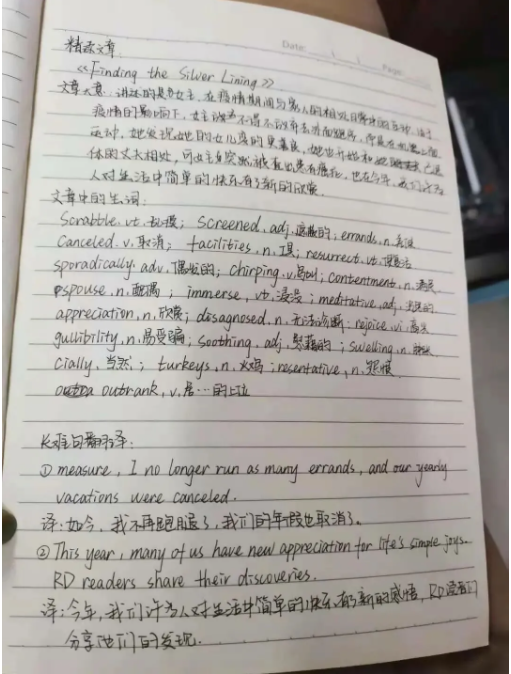 精读文章
Date: Page:
《Finding the Silver Lining》
文章大意:讲述的是女主,在疫情期间与家人的相处日常中的
疫情的影响下,女主不得不
她发现她的女儿,她也开始和
体的丈夫相处,可女主突然被查出患有癌症,也在今年,我们许多
人对生活中简单的快乐有了新的欣赏。
文章中的生词:
Scrabble. vt. ; Screened. adj. 遮蔽的; errands. n.
Canceled. v. 取消; facilities. n. 工具; resurrect. vt.
sporadically. adv. 偶发的; chirping. v. ; contentment. n. 满足
spouse. n. 配偶; immerse. vt. 浸没; meditative. adj.
appreciation. n. 欣赏; disagnosed. n. 无法诊断; rejoice. vi. 高兴
gullibility. n. 易受骗; Soothing. adj. 慰藉的; Swelling. n.
cially. 当然; turkeys. n. 火鸡; resentative. n. 怨恨
outrank. v. 居…的上位
长难句翻译:
① measure, I no longer run as many errands, and our yearly
vacations were canceled.
译:如今,我不再跑腿了,我们的年假也取消了。
② This year, many of us have new appreciation for life's simple joys.
RD readers share their discoveries.
译:今年,我们许多人对生活中简单的快乐有了新的感悟,RD读者们
分享他们的发现.